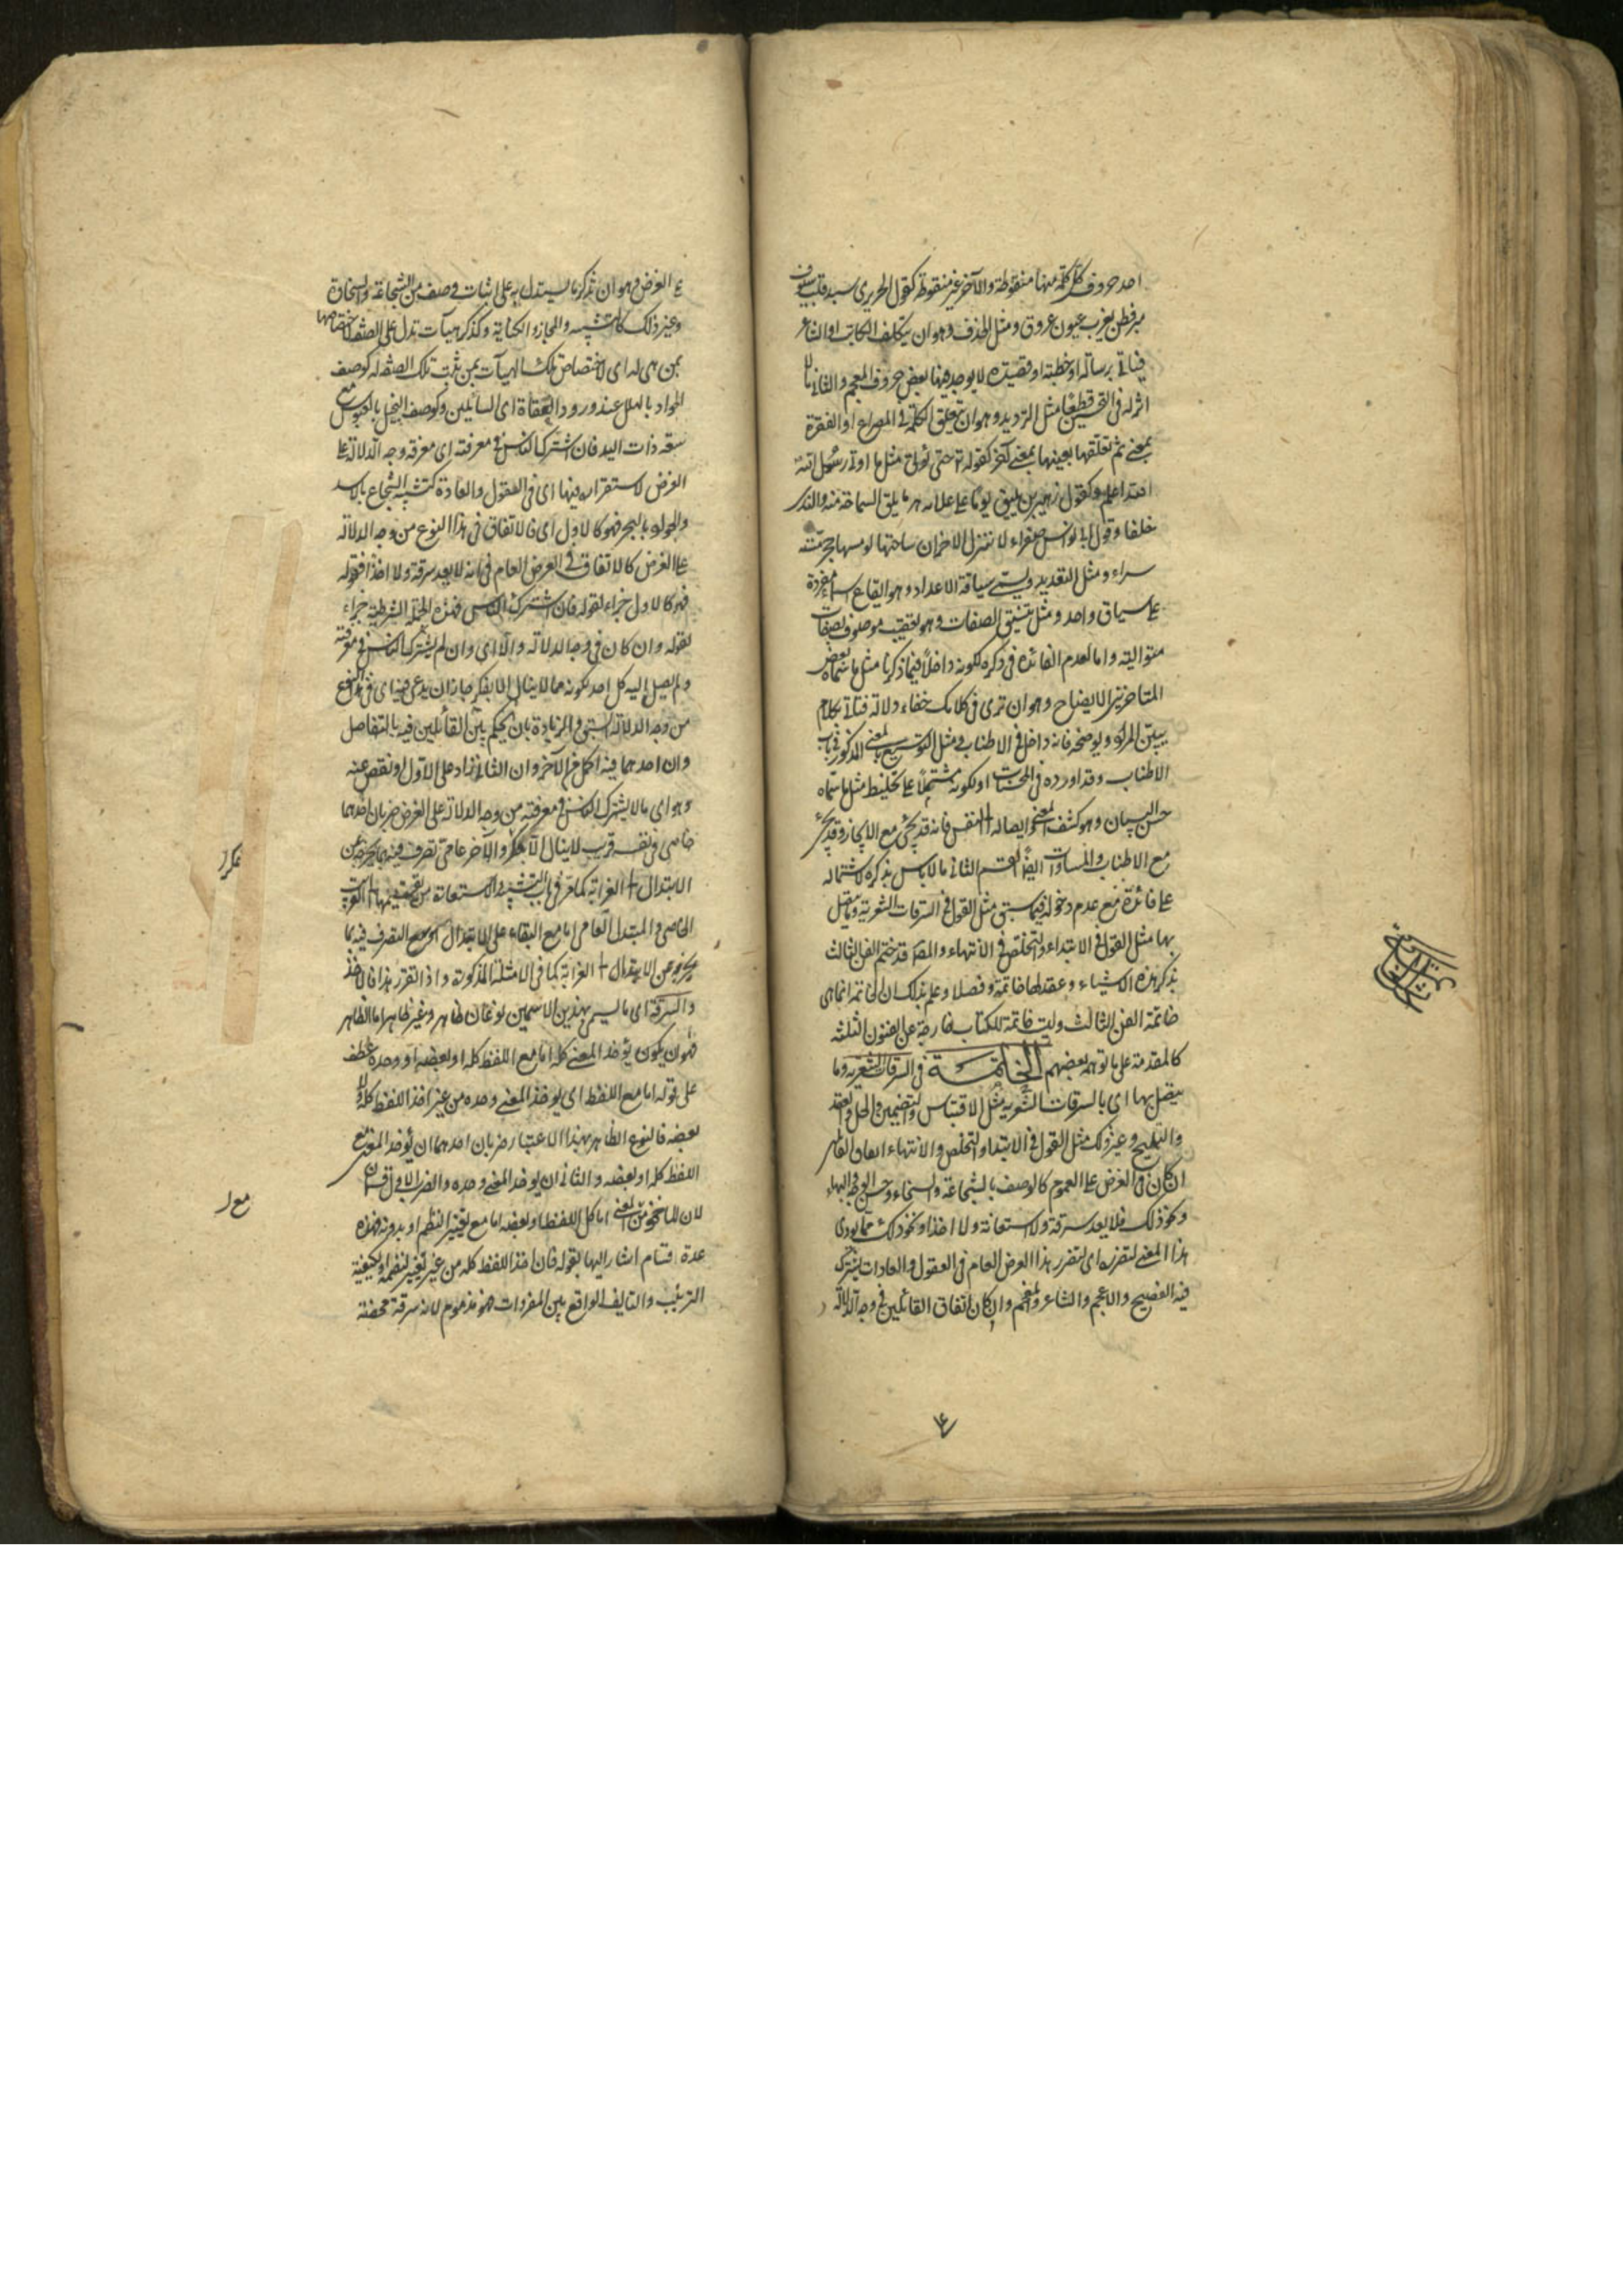 احد حروف كل كلمة منها منقوطة والآخر غير منقوطة كقول الحريري سيد قلب سبوق
مبر فطن يغرب عيون عزوف ومثل الحذف وهو ان يتكلف الكاتب او الشاعر
فيأتي برسالة او خطبة او قصيدة لا يوجد فيها بعض حروف المعجم والثاني ما لا
اثر له في التحسين قطعا مثل الترديد وهو ان تعلق الكلمة في المصراع او الفقرة
بمعنى ثم تعلقها بعينها بمعنى آخر كقوله تع حتى نؤتى مثل ما اوتي رسل الله
الله اعلم وكقول زهير من يلق يوما على علاته هرما يلق السماحة منه والندى
خلقا وقول ابي نواس صفراء لا تنزل الاحزان ساحتها لو مسها حجر مسته
سراء ومثل التعديد ويسمى سياقة الاعداد وهو ايقاع اسماء مفردة
على سياق واحد ومثل تنسيق الصفات وهو تعقيب موصوف بصفات
متوالية واما لعدم الفائدة في ذكره لكونه داخلا فيما ذكرنا مثل ما سماه بعض
المتاخرين الايضاح وهو ان ترى في كلامك خفاء دلالة فتأتي بكلام
يبين المراد ويوضحه فانه داخل في الاطناب ومثل التوشيع بالمعنى المذكور في باب
الاطناب وقد اورده في المحسنات او لكونه مشتملا على تخليط مثل ما سماه
حسن البيان وهو كشف المعنى وايصاله الى النفس فانه قد يجئ مع الايجاز وقد يجئ
مع الاطناب والمساوات ايضا القسم الثاني ما لا باس بذكره لاشتماله
على فائدة مع عدم دخوله فيما سبق مثل القول في السرقات الشعرية وما يتصل
بها مثل القول في الابتداء والتخلص في الانتهاء والمصنف قد ختم الفن الثالث
بذكر هذه الاشياء وعقد لها خاتمة وفصلا وعلم بذلك ان الخاتمة انما هي
خاتمة الفن الثالث وليست خاتمة للكتاب خارجة عن الفنون الثلثة
كالمقدمة على ما توهمه بعضهم الخاتمة في السرقات الشعرية وما
يتصل بها اي بالسرقات الشعرية مثل الاقتباس والتضمين والحل والعقد
والتلميح وغير ذلك مثل القول في الابتداء والتخلص والانتهاء اتفاق القائلين
ان كان في الغرض على العموم كالوصف بالشجاعة والسخاء وحسن الوجه والبهاء
ونحو ذلك فلا يعد سرقة ولا استعانة ولا اخذا ونحو ذلك مما يؤدى
هذا المعنى لتقرره اي لتقرر هذا الغرض العام في العقول والعادات يشترك
فيه الفصيح والاعجم والشاعر والمفحم وان كان اتفاق القائلين في وجه الدلالة
على الغرض وهو ان يذكر ما يستدل به على اثبات وصف من الشجاعة والسخاوة
وغير ذلك كالتشبيه والمجاز والكناية وكذكر هيآت تدل على الصفة لاختصاصها
بمن هي له اي لاختصاص تلك الهيآت بمن ثبت تلك الصفة له كوصف
الجواد بالتهلل عند ورود العفاة اي السائلين وكوصف البخيل بالعبوس مع
سعة ذات اليد فان اشترك الناس في معرفته اي معرفة وجه الدلالة على
الغرض لاستقراره فيها اي في العقول والعادة كتشبيه الشجاع بالاسد
والجواد بالبحر فهو كالاول اي فالاتفاق في هذا النوع من وجه الدلالة
على الغرض كالاتفاق في الغرض العام في انه لا يعد سرقة ولا اخذا فقوله
فهو كالاول جزاء لقوله فان اشترك الناس فهذه الجملة الشرطية جزاء
لقوله وان كان في وجه الدلالة والا اي وان لم يشترك الناس في معرفته
ولم يصل اليه كل احد لكونه مما لا ينال الا بفكر جاز ان يدعى فيه اي في هذا النوع
من وجه الدلالة السبق والزيادة بان يحكم بين القائلين فيه بالتفاضل
وان احدهما فيه اكمل من الآخر وان الثاني زاد على الاول او نقص عنه
وهو اي ما لا يشترك الناس في معرفته من وجه الدلالة على الغرض ضربان احدهما
خاصي في نفسه غريب لا ينال الا بفكر والآخر عامي تصرف فيه بما اخرجه من
الابتذال الى الغرابة كما مر في باب التشبيه والاستعارة من تقسيمهما الى الغريب
الخاصي والمبتذل العامي اما مع البقاء على الابتذال او مع التصرف فيه بما
يخرجه عن الابتذال الى الغرابة كما في الامثلة المذكورة واذا تقرر هذا فالاخذ
والسرقة اي ما يسمى بهذين الاسمين نوعان ظاهر وغير ظاهر اما الظاهر
فهو ان يكون يؤخذ المعنى كله اما مع اللفظ كله او بعضه او وحده عطف
على قوله اما مع اللفظ اي يؤخذ المعنى وحده من غير اخذ اللفظ كله ولا
بعضه فالنوع الظاهر بهذا الاعتبار ضربان احدهما ان يؤخذ المعنى مع
اللفظ كله او بعضه والثاني ان يؤخذ المعنى وحده والضرب الاول قسمان
لان المأخوذ مع المعنى اما كل اللفظ او بعضه اما مع تغيير النظم او بدونه فهذه
عدة اقسام اشار اليها بقوله فان اخذ اللفظ كله من غير تغيير لنظمه اي لكيفية
الترتيب والتأليف الواقع بين المفردات فهو مذموم لانه سرقة محضة